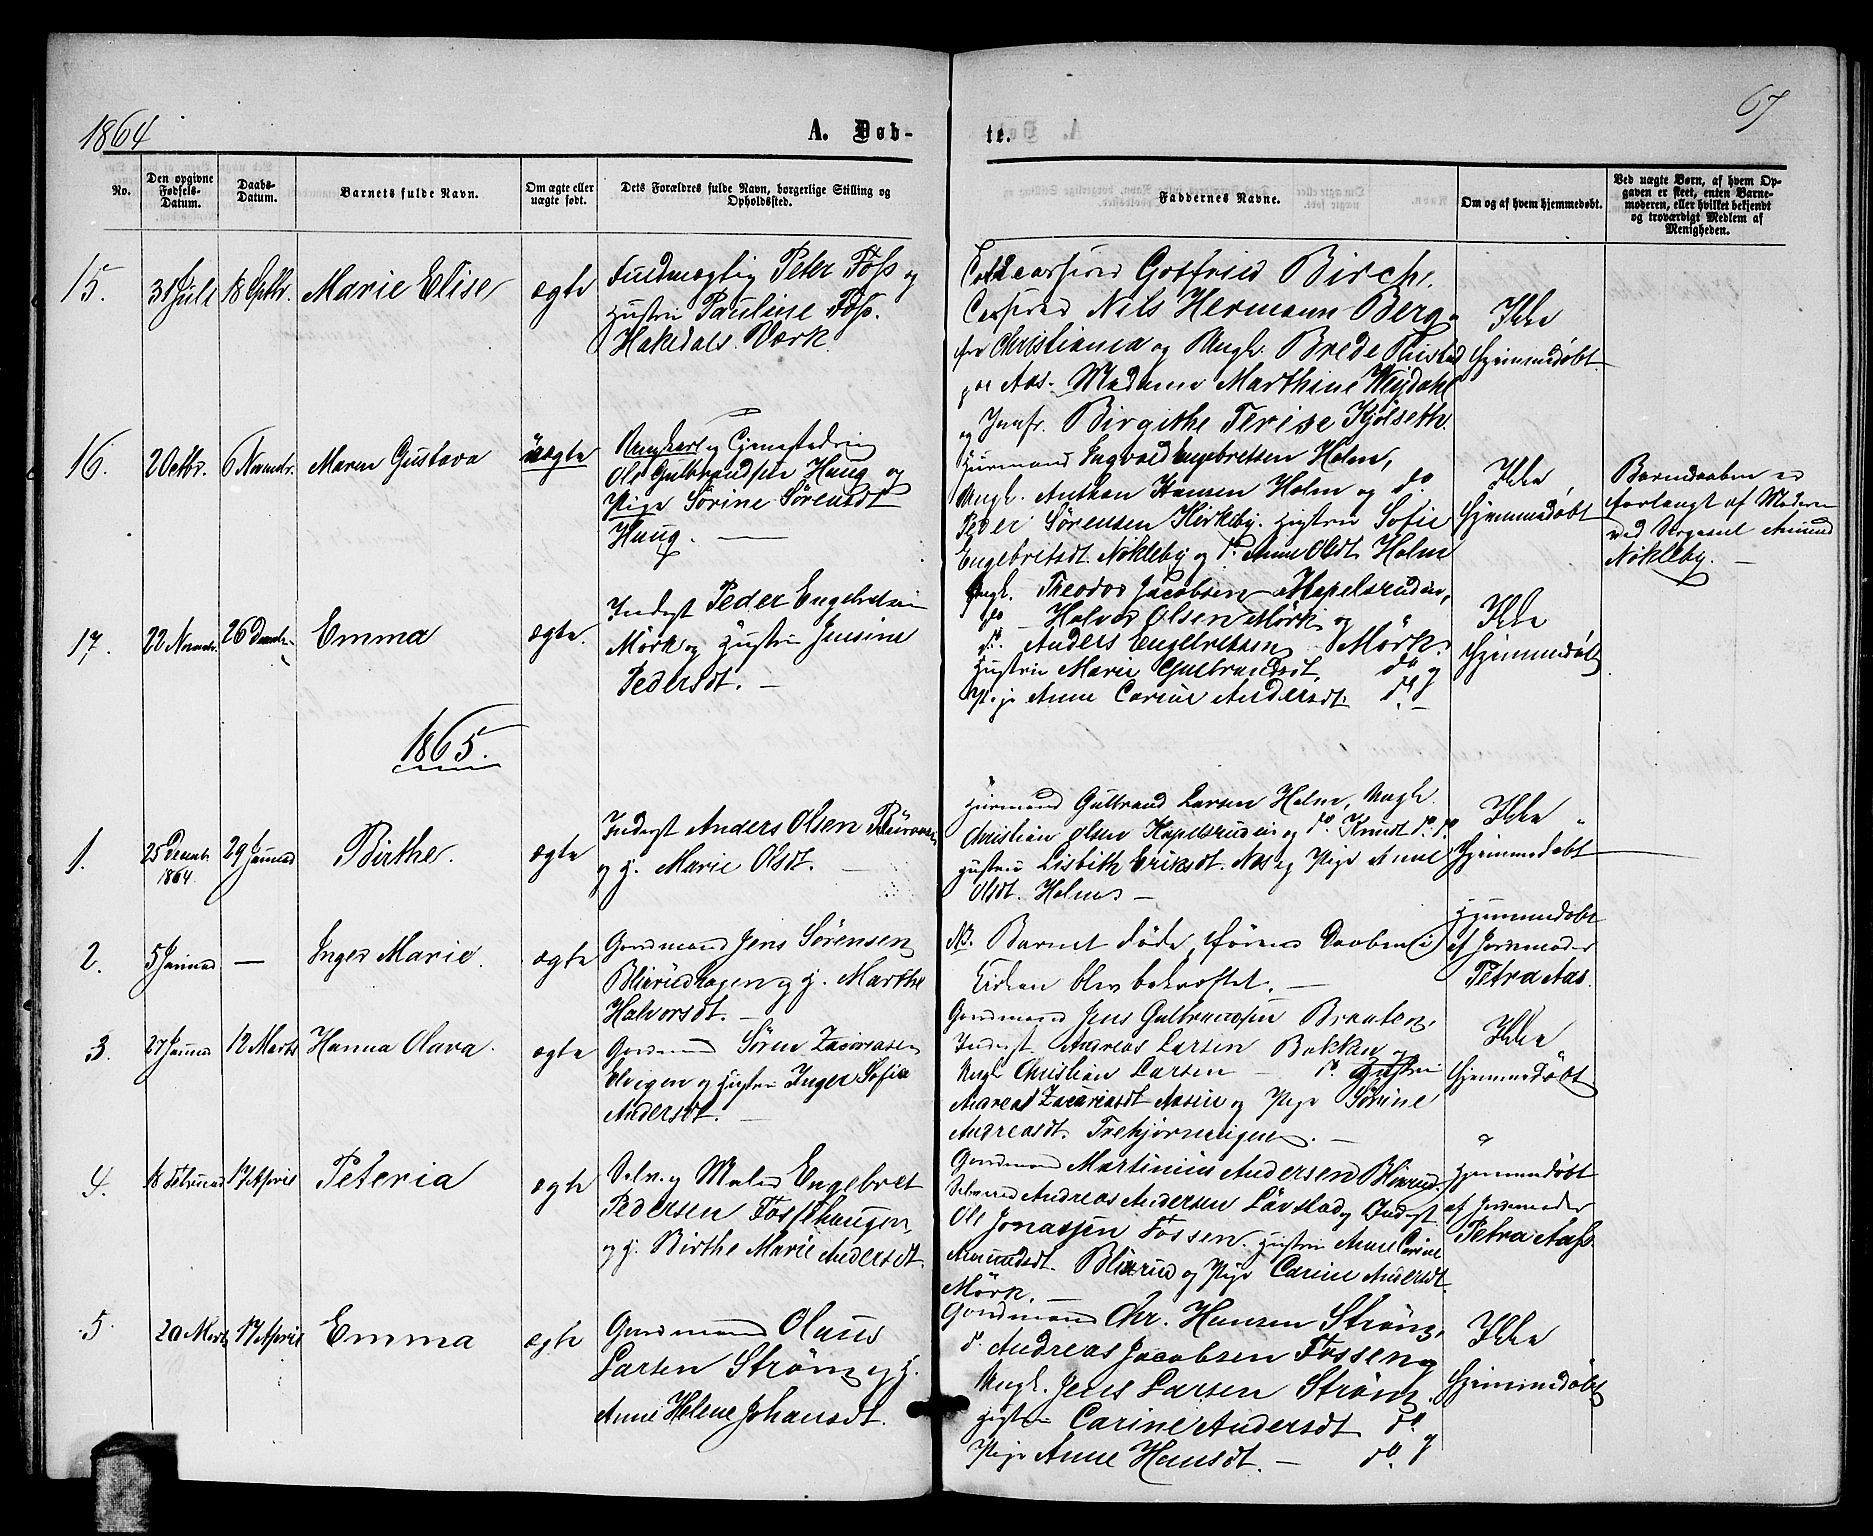 1864
A. Døb-
te.
67
No.
Den opgivne Fødsels-Datum.
Daabs-Datum.
Barnets fulde Navn.
Om ægte eller uægte født.
Dets Forældres fulde Navn, borgerlige Stilling og Opholdssted.
Faddernes Navne.
Om og af hvem hjemmedøbt.
Ved uægte Børn, af hvem Opgaven er skeet, enten Barnemoderen, eller hvilket bekjendt og troværdigt Medlem af Menigheden.
15. 31 Juli 18 Septbr. Marie Elise ægte
Fuldmægtig Peter Foss og
Hustru Pauline Foss.
Hakedals Værk.
Gotfried Birch,
Nils Hermann Berg
fra Christiania og Ungk. Brede
Aas. Madame Marthine
og Jomfr. Birgithe Terese Kjølseth.
Ikke
hjemmedøbt
16. 2 Octbr. 6 Novembr. Maren Gustava uægte
Ungkarl og
Ole Gulbrandsen Haug og
Pige Sørine Sørensdt
Haug. —
Huusmand Ingvald Engebretsen Holm,
Ungk. Anthon Hansen Holm og do.
Peder Sørensen Kirkeby. Hustru Sofie
Engebretsdt. Nökleby og do. Anne Olsdt. Holm
Ikke
hjemmedøbt
Barnedaaben er
forlangt af Moderen
ved Amund
Nökleby. —
17. 22 Novembr. 26 Decembr. Emma ægte.
Inderst Peder Engebretsen
Mörk og Hustru Jensine
Pedersdt. —
Ungk. Theodor Jacobsen Hapelsrudeie,
do — Halvor Olsen Mörk og
do. Anders Engebretsen Mörk.
Hustru Marie Gulbrandsdt. do og
Pige Anne Carine Andersdt. do. —
Ikke
hjemmedøbt
1865.
1. 25 Decembr. 1864 29 Januar Birthe. ægte
Inderst Anders Olsen
og H. Marie Olsdt. —
Huusmand Gulbrand Larsen Holm, Ungk.
Christian Olsen Hapelsrudeie og do. Knudt do. do.
Hustru Lisbeth Eriksdt. Aas og Pige Anne
Olsdt. Holm —
Ikke
hjemmedøbt
2. 5 Januar — Inger Marie. ægte
Gaardmand Jens Sørensen
Blirudhagen og H. Marthe
Halvorsdt. —
NB. Barnet døde, førend Daaben i
Kirken blev bekræftet. —
Hjemmedøbt
af Jordemoder
Petra Aas.
3. 27 Januar 12 Marts Hanna Olava. ægte
Gaardmand Søren Zacariasen
Elvigen og Hustru Inger Sofie
Andersdt. —
Gaardmand Jens Gulbrandsen Braaten,
Inderst Andreas Larsen Bakken og
Ungk. Christian Larsen — do. Hustru
Andrea Zacariasdt. Aasen og Pige Sørine
Andreasdt. —
Ikke
hjemmedøbt
4. 18 Februar 17 April Peteria ægte
Selv. og Maler Engebret
Pedersen Fossehaugen,
og H. Birthe Marie Andersdt.
Gaardmand Martinius Andersen Blirud.
Selveier Andreas Andersen Lövstad og Inderst
Ole Jonassen Fossen. Hustru Anne Carine
Amundsdt. Blirud og Pige Carine Andersdt.
Mörk.
Hjemmedøbt
af Jordemoder
Petra Aas.
5. 20 Marts 17 April Emma ægte
Gaardmand Olaus
Larsen Strøm og H.
Anne Helene Johansdt.
Gaardmand Chr. Hansen Strøm,
do. Andreas Jacobsen Fossen og
Ungk. Jens Larsen Strøm
Hustru Carine Andersdt do. og
Pige Anne Hansdt. — do.
Ikke
hjemmedøbt